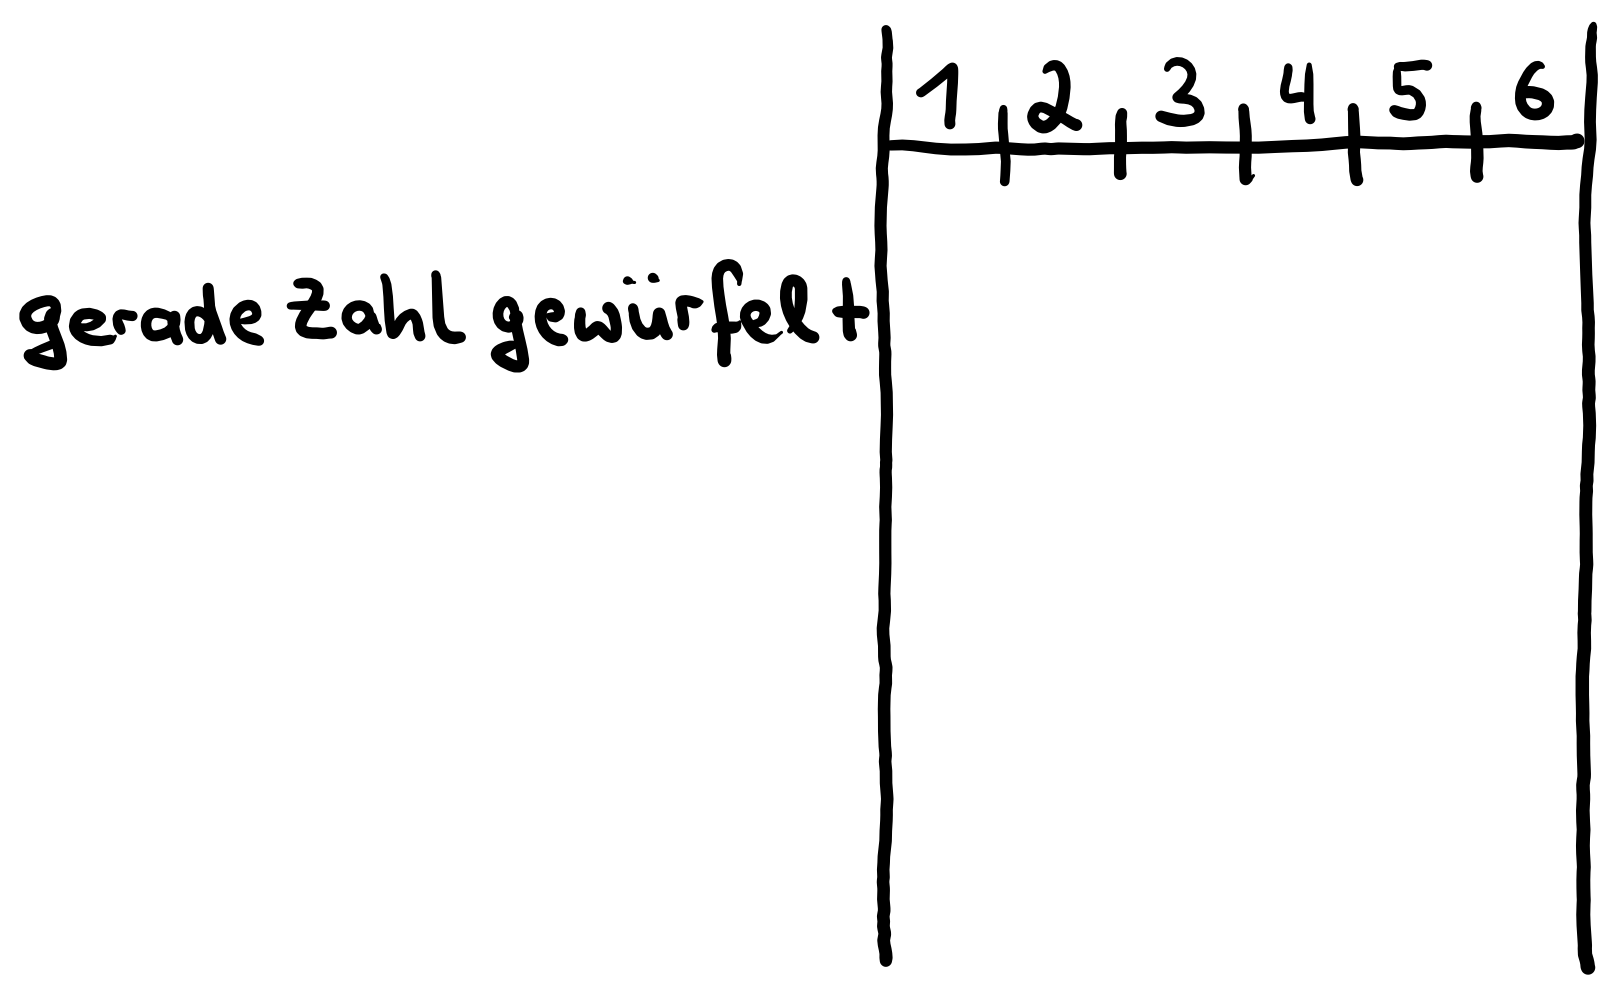 1 2 3 4 5 6
gerade Zahl gewürfelt